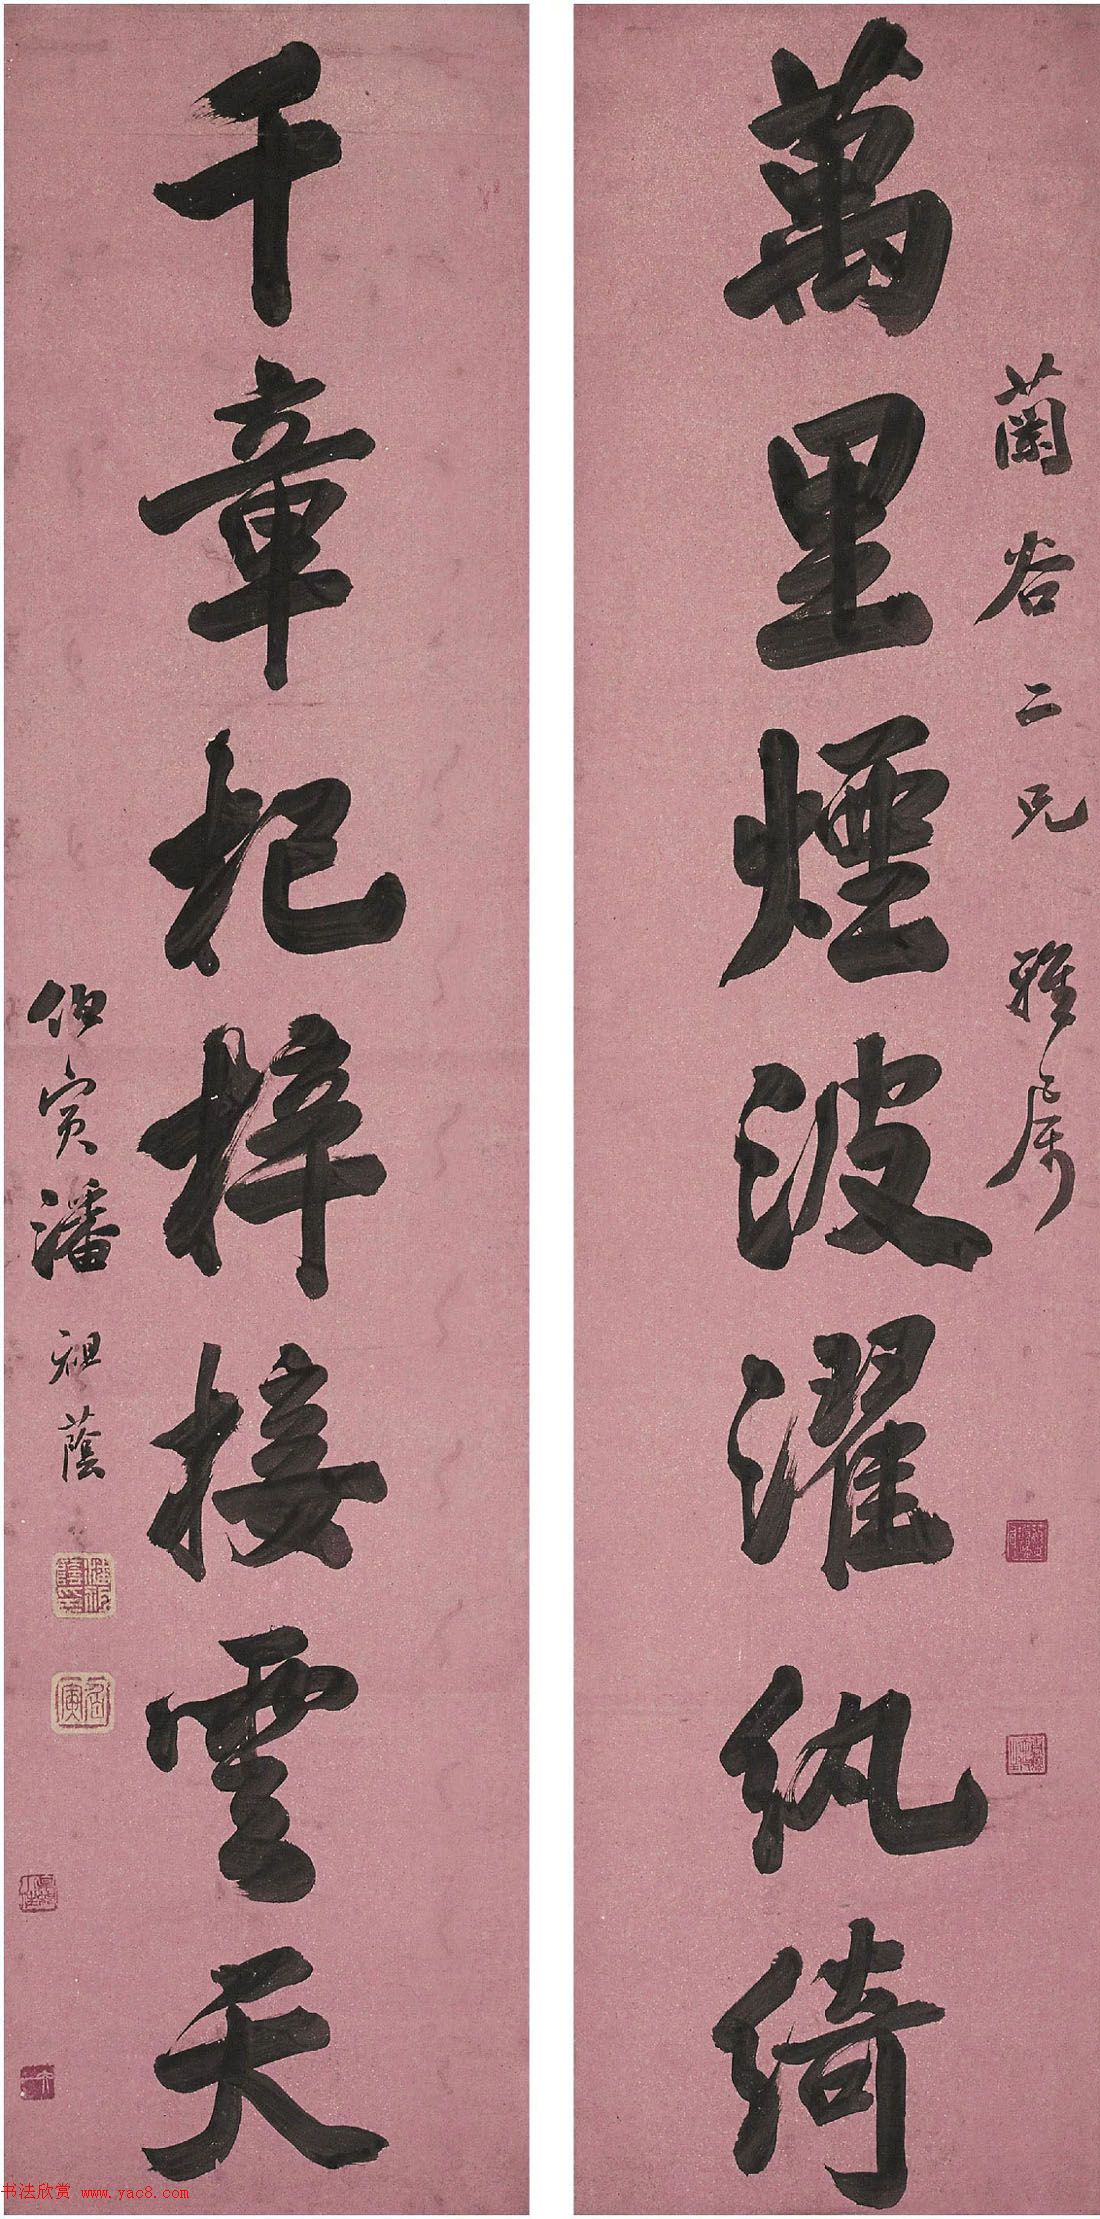 萬里煙波濯紈綺
蘭谷二兄雅屬
千章杞梓接雲天
伯寅潘祖蔭
潘祖蔭印
伯寅
书法欣赏 www.yac8.com